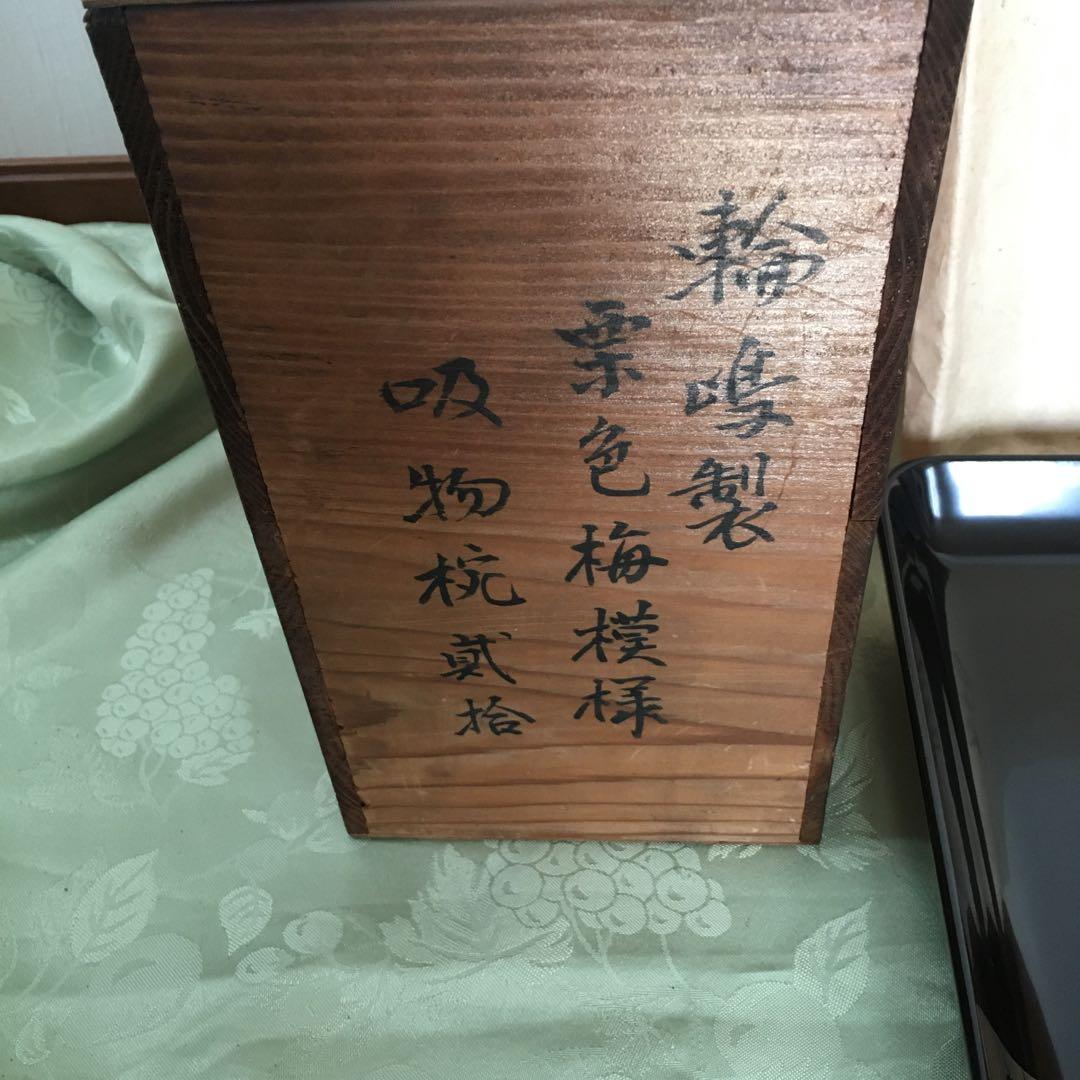 輪嶋製
栗色梅模様
吸物椀貳拾